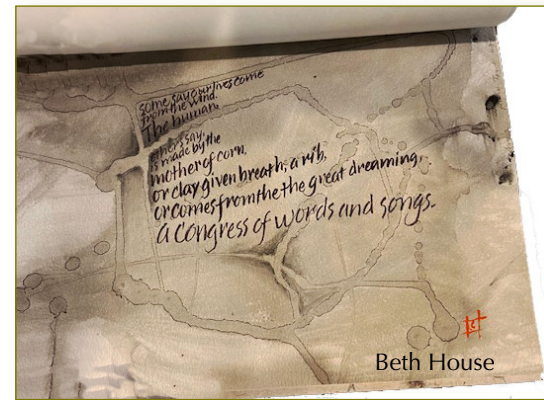 some say our lives come
from the wind.
The human,
others say,
is made by the
mother of corn,
or clay given breath, a rib,
or comes from the the great dreaming,
a congress of words and songs.
Beth House